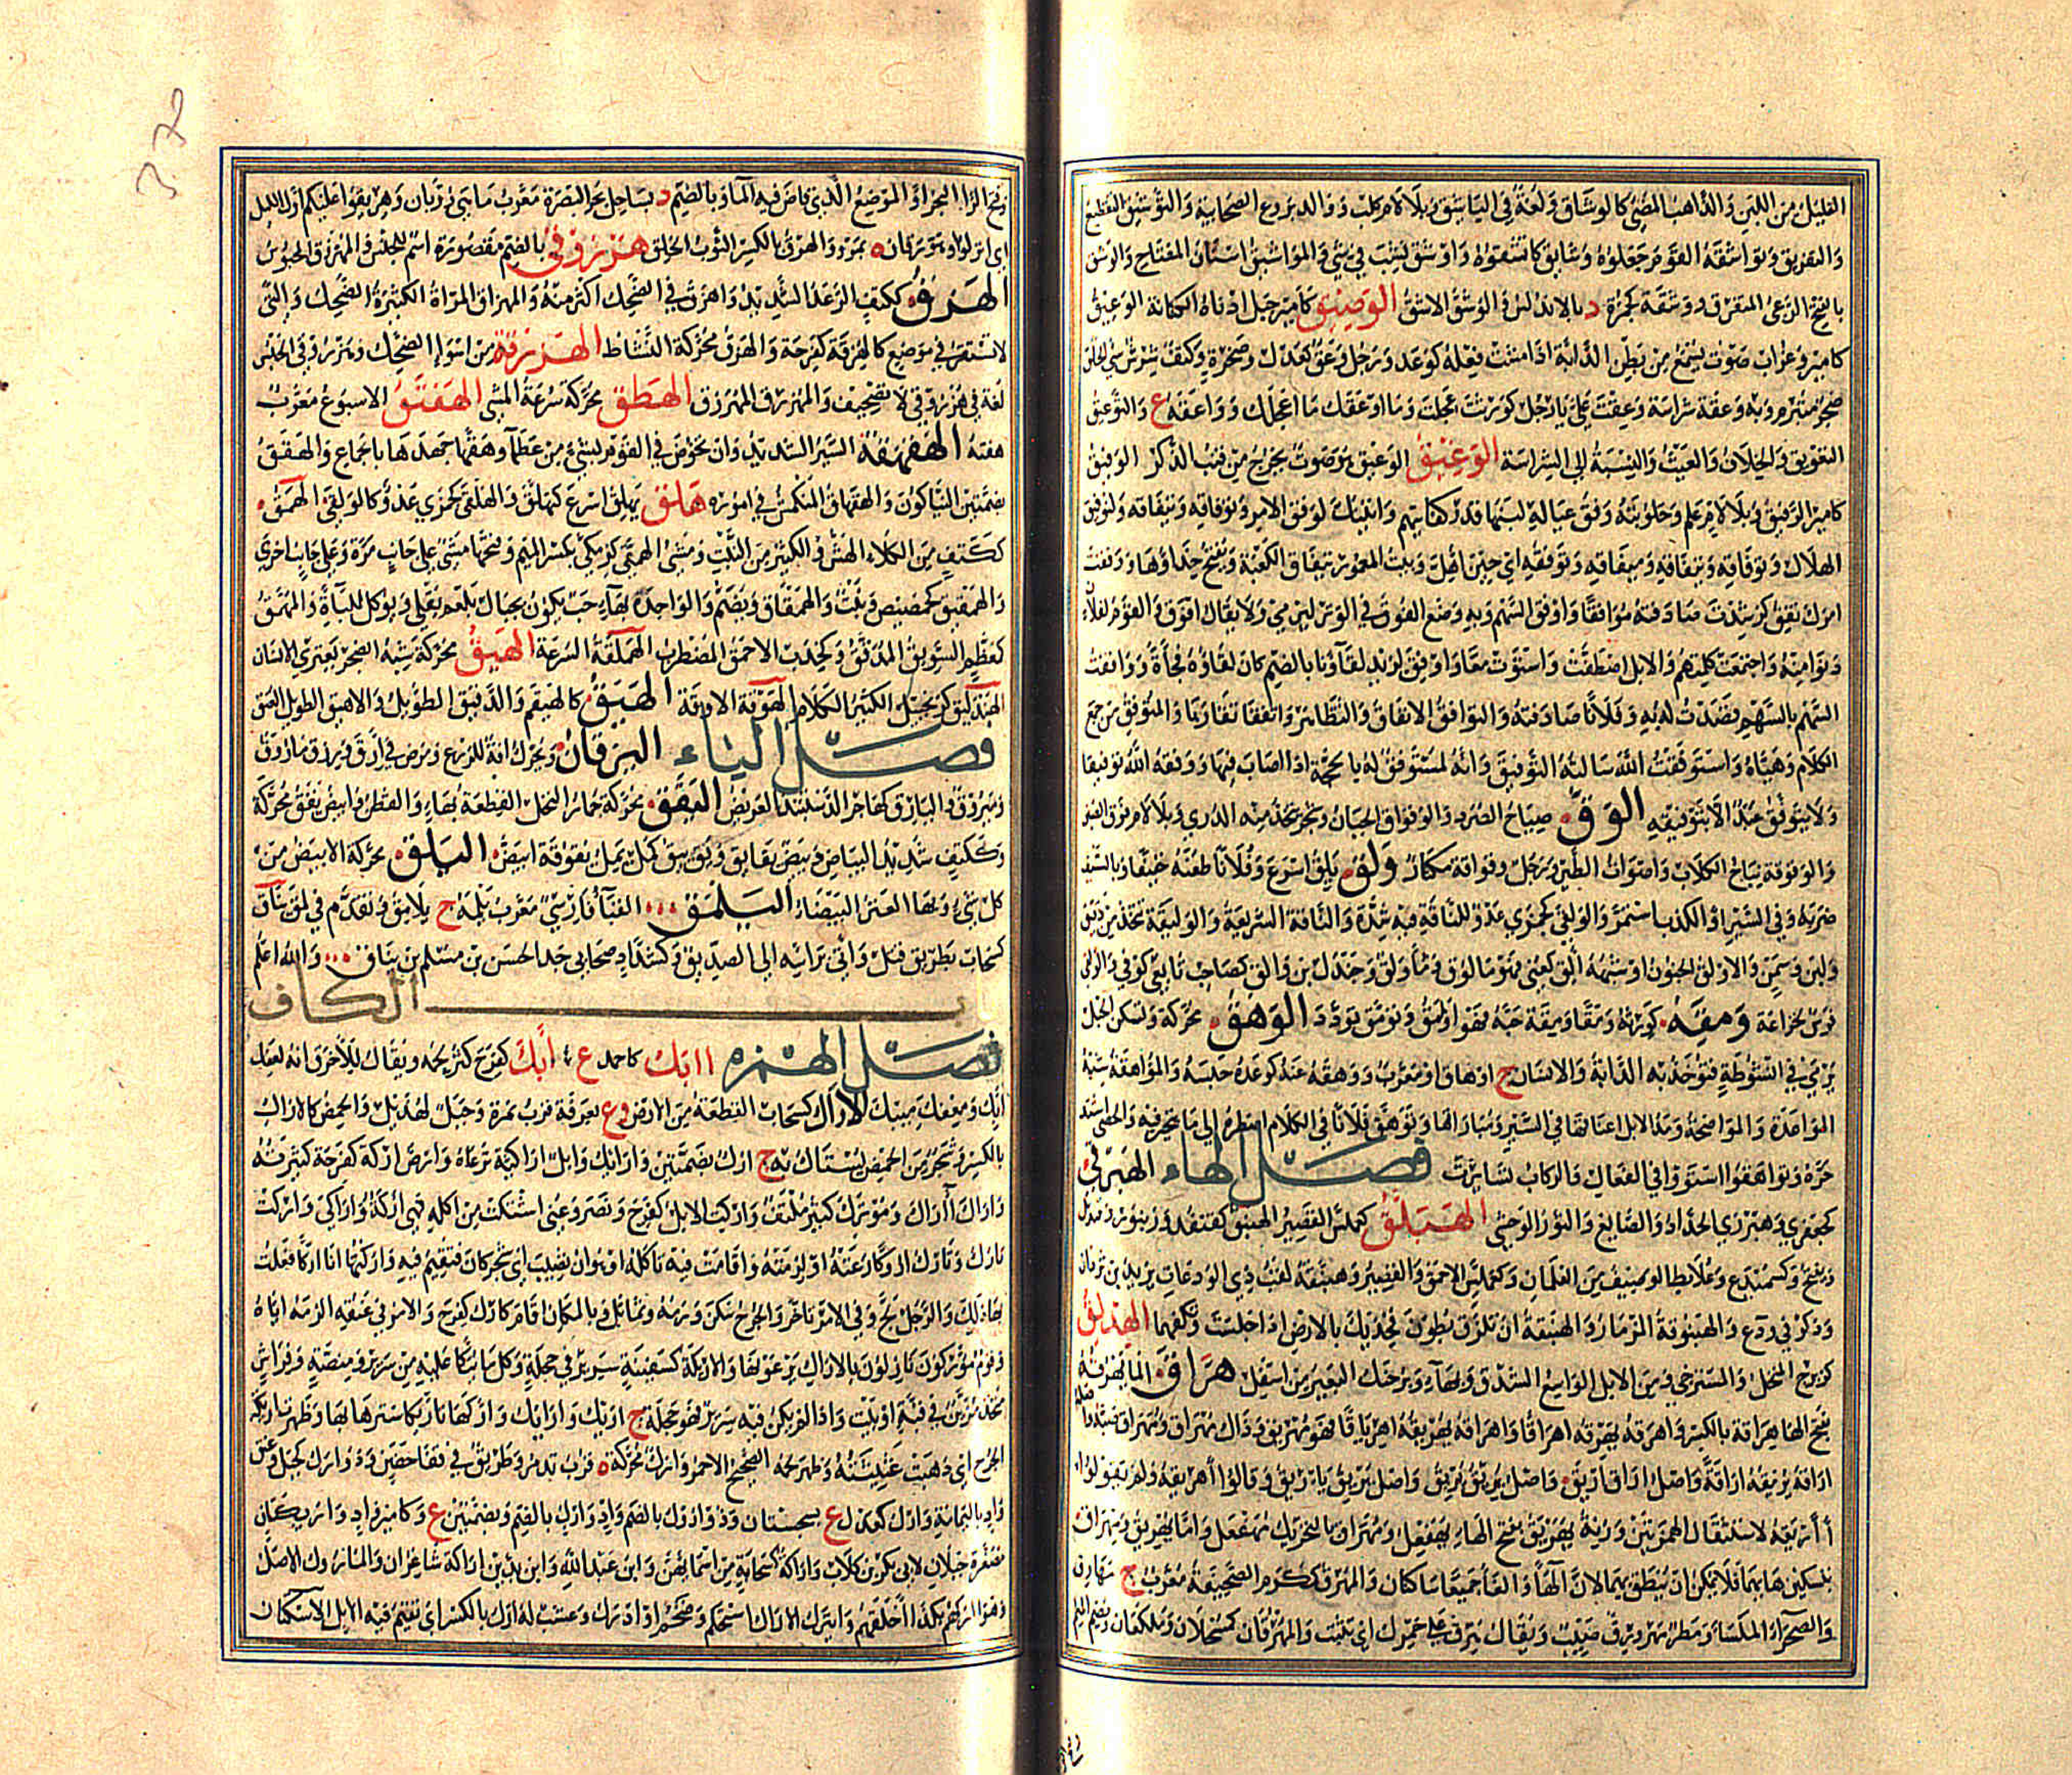 القليل من اللبن والذاهب المضي كالوشاق ولغة في الياشق وبلا لام كلب ووالد بزوع الصحابية والتوشيق التقطيع
والتفريق وتواشقه القوم جعلوه وشايق كاتشقوه واوشق نشب في شيء والمواشيق اسنان المفتاح والوشق
بالفتح الرعي المتفرق ووشقة كحمزة د بالاندلس والوشق الاشق الوصيق كامير جبل ادناه لكنانة الوعيق
كامير وغراب صوت يسمع من بطن الدابة اذا مشت فعله كوعد ورجل وعق كعدل وصخرة وكتف شرس سيئ الخلق
ضجر متبرم وبه وعقة شراسة وعقت علي يا رجل كورثت عجلت وما اوعقك ما اعجلك وواعقة ع والتوعيق
التعويق والخلاف والعيث والنسبة الى الشراسة الوغيق الوعيق وصوت يخرج من قنب الذكر الوفيق
كامير الرفيق وبلا لام علم وحلوبته وفق عياله لبنها قدر كفايتهم واتيتك لوفق الامر وتوفاقه وتيفاقه ولتوفيق
الهلال وتوفاقه وتيفاقه وميفاقه وتوفقه اي حين اهل وبيت المعمور تيفاق الكعبة ويفتح حذاؤها ووفقت
امرك تفق كرشدت صادفته موافقا واوفق السهم وبه وضع الفوق في الوتر ليرمي ولا يقال افوق والقوم لفلان
دنوا منه واجتمعت كلمتهم والابل اصطفت واستوت معا واوفق لزيد لقاؤنا بالضم كان لقاؤه فجأة ووافقت
السهم بالسهم قصدت له به وفلانا صادفته والتوافق الاتفاق والتظاهر واتفقا تقاربا والمتوفق من جمع
الكلام وهياه واستوفقت الله سالته التوفيق وانه لمستوفق له بالحجة اذا اصاب فيها ووفقه الله توفيقا
ولا يتوفق عبد الا بتوفيقه الوق صياح الصرد والوقواق الجبان وشجر تتخذ منه الدوي وبلاد فوق الصين
والوقوقة نباح الكلاب واصوات الطير ورجل وقواقة مكثار ولق يلق اسرع وفلانا طعنه خفيفا وبالسيف
ضربه وفي السير او الكذب استمر والولقى كجمزى عدو للناقة فيه شدة والناقة السريعة والوليقة تتخذ من دقيق
ولبن وسمن والاولق الجنون او شبهه ألق كعني فهو مالوق ومأولق وجندل بن والق كصاحب تابعي كوفي والوالقي
فرس لخزاعة ومقه كورثه ومقا ومقة حبه فهو وامق وتومق تودد الوهق محركة ويسكن الحبل
يرمى في انشوطة فتؤخذ به الدابة والانسان ج اوهاق او معرب ووهقه عنه كوعده حبسه والمواهقة شبه
المواعدة والمواضخة ومد الابل اعناقها في السير ومباراتها وتوهق فلانا في الكلام اضطره الى ما يتحير فيه والحصى اشتد
حره وتواهقوا استووا في الفعال والركاب تسايرت فصل الهاء الهبرقي
كجعفري وهبرزي الحداد والصايغ والثور الوحشي الهبلق كعملس القصير الهبنق كقنفد وزنبور وقنديل
وسميدع وعلابط الوصيف من الغلمان وكعملس الاحمق والقصير وهبنقة لقب ذي الودعات يزيد بن ثروان
وذكر في ودع والهبنوقة المزمار والهبنقة ان تلزق بطون فخذيك بالارض اذا جلست وتكفهما الهدلق
كزبرج المنخل والمسترخي ومن الابل الواسع الشدق وبهاء وبر حنك البعير من اسفل هراق الماء يهريقه
بفتح الهاء هراقة بالكسر واهرقه يهرقه اهراقا واهراقه يهريقه اهرياقا فهو مهريق وذاك مهراق ومهراق صبه واصله
اراقه يريقه اراقة واصل اراق اريق واصل يريق يريق واصل يريق يأريق وقالوا أهريقه ولم يقولوا
أأريقه لاستثقال الهمزتين وزنة يهريق بفتح الهاء يهفعل ومهراق بالتحريك مهفعل واما يهريق ومهراق
بتسكين هائهما فلا يمكن ان ينطق بهما لان الهاء والفاء جميعا ساكنان والمهرق ككرم الصحيفة معرب ج مهارق
والصحراء الملساء ومطر مهرورق صيب ويقال هرق على خمرك اي تثبت والمهرقان كمسحلان وملكعان وبضم الميم
وفتح الراء البحر او الموضع الذي فاض فيه الماء وبالضم د بساحل بحر البصرة معرب ماهي رويان وهريقوا عليكم اول الليل
اي انزلوا ومهرقان ة بمرو والهرق بالكسر الثوب الخلق هزروقى بالضم مقصورة اسم للحبس والمهزرق المحبوس
الهزق ككتف الرعد الشديد واهزق في الضحك اكثر منه والمهزاق المراة الكثيرة الضحك والتي
لا تستقر في موضع كالهزقة كفرحة والهزق محركة النشاط الهزرقة من اسوإ الضحك وهزروقي الحبس
لغة في هرزوقي لا تصحيف والمهزرق المهرزق الهطق محركة سرعة المشي الهفتق الاسبوع معرب
هفته الهقهقة السير الشديد وان تخوض في القوم بشيء من عطاء وهقها جهدها بالجماع والهقق
بضمتين النياكون والهقهاق المتكمش في اموره هلق يهلق اسرع كتهلق والهلقى كجمزى عدو كالولقى الهمق
ككتف من الكلاء الهش والكثير من النبت ومشى الهمقى كزمكى بكسر الميم وفتحها مشى على جانب مرة وعلى جانب اخرى
والهمقيق كحمصيص نبت والهمقاق ويضم والواحدة بهاء حب يكون بجبال بلعم يقلى ويؤكل للباءة والمهمق
كمعظم السويق المدقق وكخدب الاحمق المضطرب الهملقة السرعة الهنق محركة شبه الضجر يعتري الانسان
الهندليق كزنجبيل الكثير الكلام الهوقة الاوقة الهيق كالهيقم والدقيق الطويل والاهيق الطويل العنق
فصل الياء اليرقان ويحرك افة للزرع ومرض في أرق وزرع ماروق
وميروق واليارق كهاجر الدستبند العريض اليقق محركة جمار النخل القطعة بهاء والقطن وابيض يقق محركة
وككتف شديد البياض وبيض يقايق وقد يق كمل يمل يقوقة ابيض اليلق محركة الابيض من
كل شيء وبهاء العنز البيضاء اليلمق القباء فارسي معرب يلمه ج يلامق وتقدم في لمق يناق
كسحاب بطريق قتل واتي برأسه الى الصديق وكشداد صحابي جد الحسن بن مسلم بن يناق والله اعلم
باب الكاف
فصل الهمزه اابك كاحمد ع أبك كفرح كثر لحمه ويقال للاخرق انه لعبك
ابك ومعفك ممبك الاراك كسحاب القطعة من الارض وع بعرفة قرب نمرة وجبل لهذيل والحمض كالارك
بالكسر وشجر من الحمض يستاك به ج ارك بضمتين وارايك وابل اراكية ترعاه وارض اركة كفرحة كثيرته
واراك أرك ومؤترك كثير ملتف واركت الابل كفرح ونصر وعني اشتكت من اكله فهي اركة واراكى واركت
تارك وتارك اروكا رعته او لزمته واقامت فيه تأكله او هو ان تصيب اي شجر كان فتقيم فيه واركتها انا اركا فعلت
بها ذلك والرجل لج وفي الامر تأخر والجرح سكن ورمه وتماثل وبالمكان اقام كارك كفرح والامر في عنقه الزمه اياه
وقوم مؤركون نازلون بالاراك يرعونها والاريكة كسفينة سرير في حجلة وكل ما يتكأ عليه من سرير ومنصة وفراش
متخذ مزين في قبة او بيت واذا لم يكن فيه سرير فهو حجلة ج اريك وارايك واركها تاريكا سترها بها وظهر اريكة
الجرح اي ذهبت غثيثته وظهر لحمه الصحيح الاحمر وارك محركة ة قرب تدمر وطريق في قفا حضن وذو ارك كجبل وعنق
واد باليمامة وارك كعنق ع بسجستان وذو اروك بالضم واد وارك بالضم وبضمتين ع وكامير واد واريكتان
مصغرة جبلان لابي بكر بن كلاب واراكة كسحابة من اسمائهن وابن عبد الله وابن اراكة شاعران والماروك الاصل
وهو اركهم بكذا اخلقهم وايترك الاراك استحكم وضخم او ادرك وعشب له ارك بالكسر اي تقيم فيه الابل الاسكتان